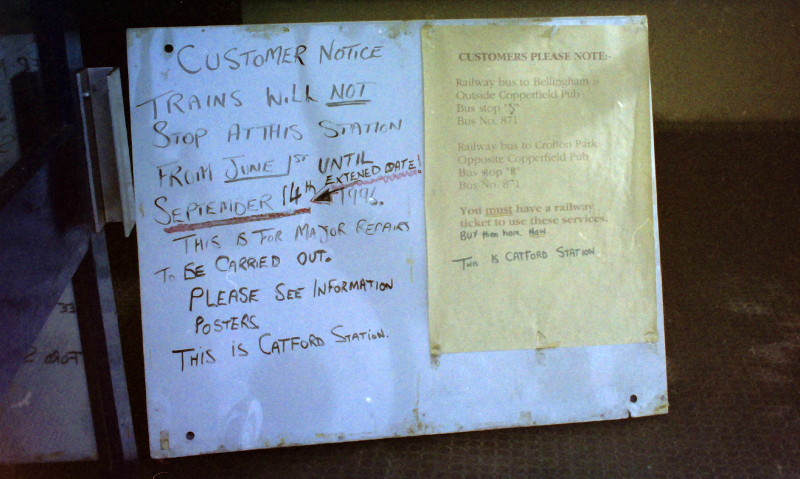 CUSTOMER NOTICE
TRAINS WILL NOT
STOP AT THIS STATION
FROM JUNE 1ST UNTIL
EXTENED DATE!
SEPTEMBER 14th 1996.
THIS IS FOR MAJOR REPAIRS
TO BE CARRIED OUT.
PLEASE SEE INFORMATION
POSTERS
THIS IS CATFORD STATION.
CUSTOMERS PLEASE NOTE:-
Railway bus to Bellingham is
Outside Copperfield Pub
Bus stop "S"
Bus No. 871
Railway bus to Crofton Park
Opposite Copperfield Pub
Bus stop "R"
Bus No. 871
You must have a railway
ticket to use these services.
BUY them here Now
THIS IS CATFORD STATION
33